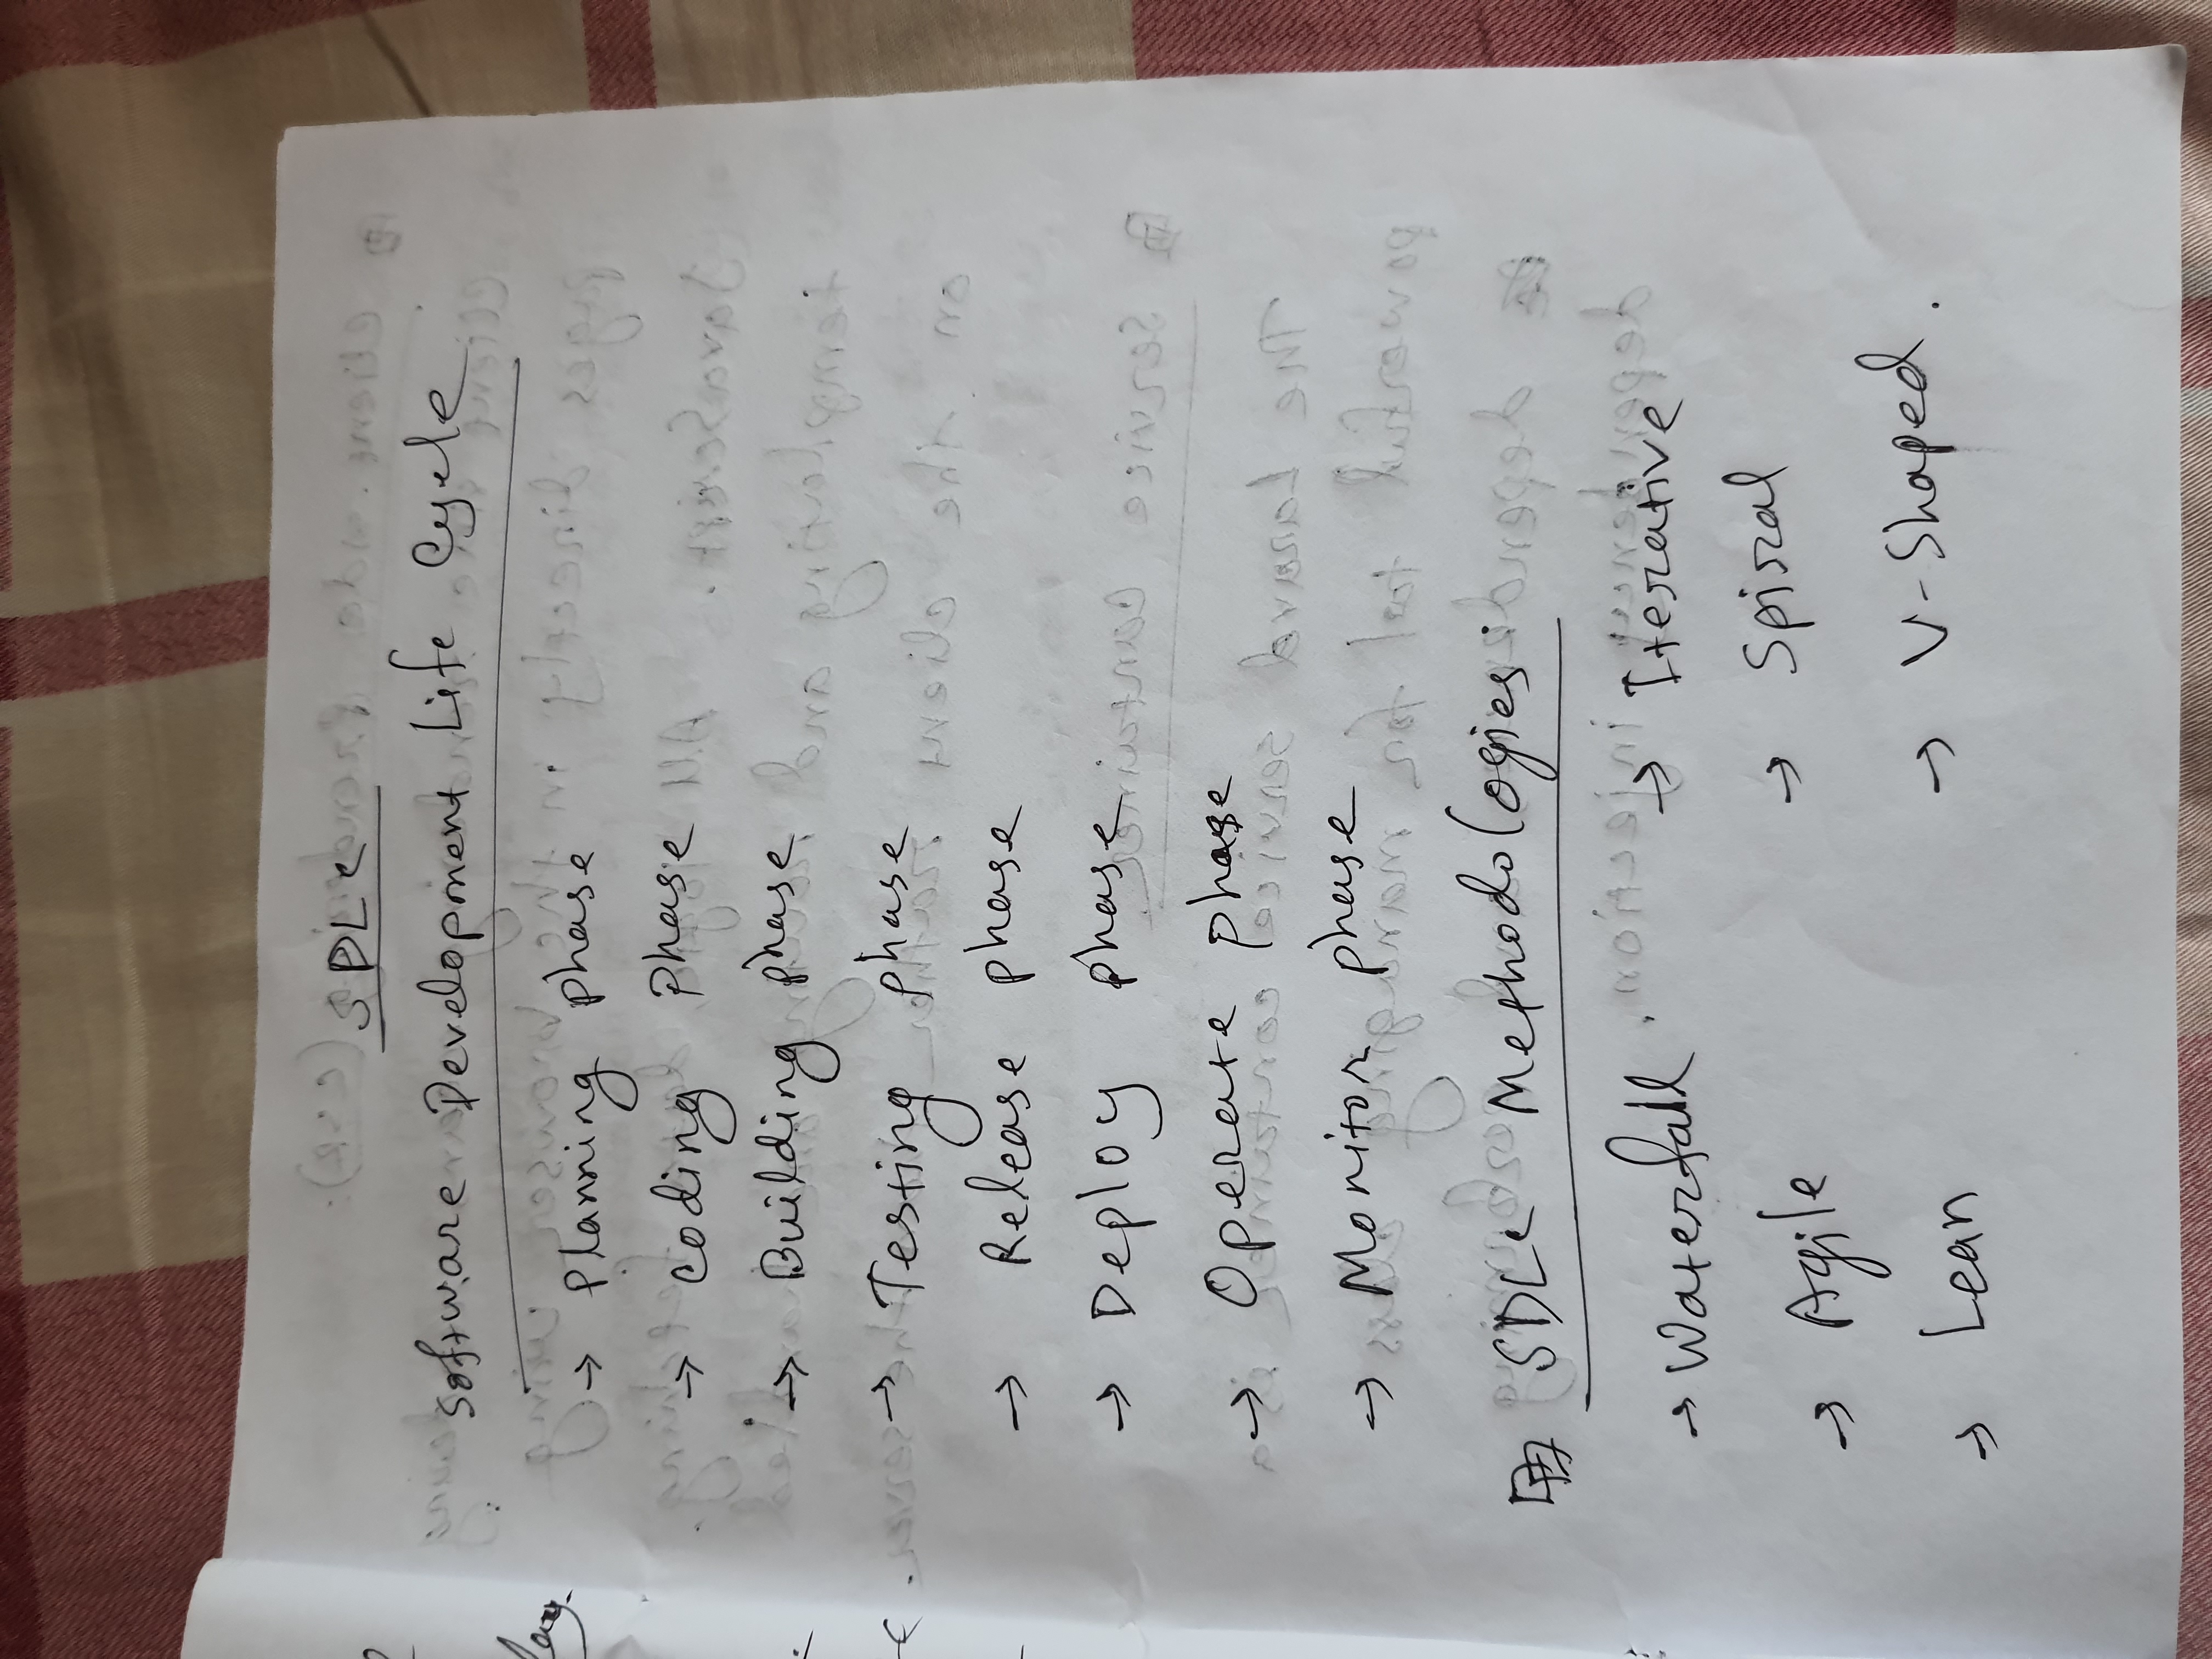 SDLC
Software Development Life Cycle
→ Planning phase
→ Coding phase
→ Building phase
→ Testing phase
→ Release phase
→ Deploy phase
→ Operate phase
→ Monitor phase
SDLC Methodologies:
→ Waterfall
→ Agile
→ Lean
→ Iterative
→ Spiral
→ V-Shaped.